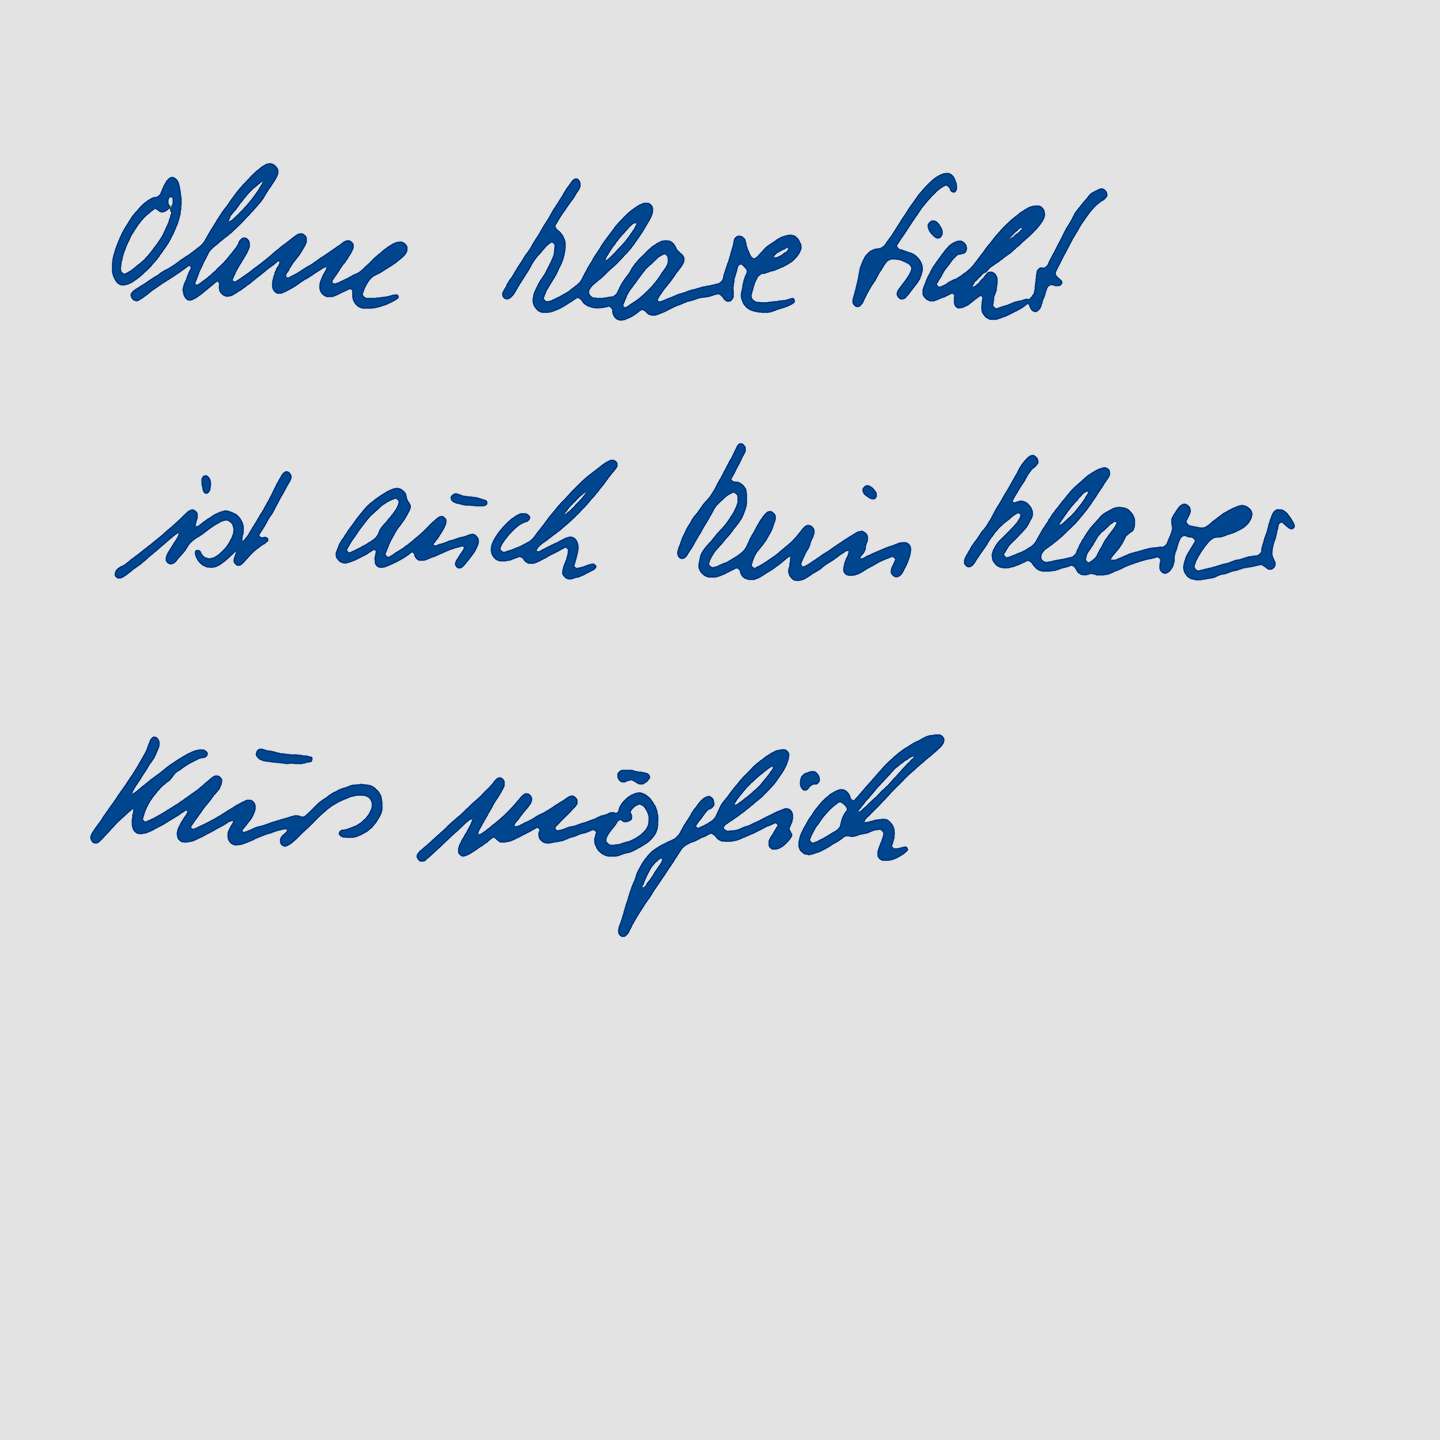 Ohne klare Sicht
ist auch kein klarer
Kurs möglich